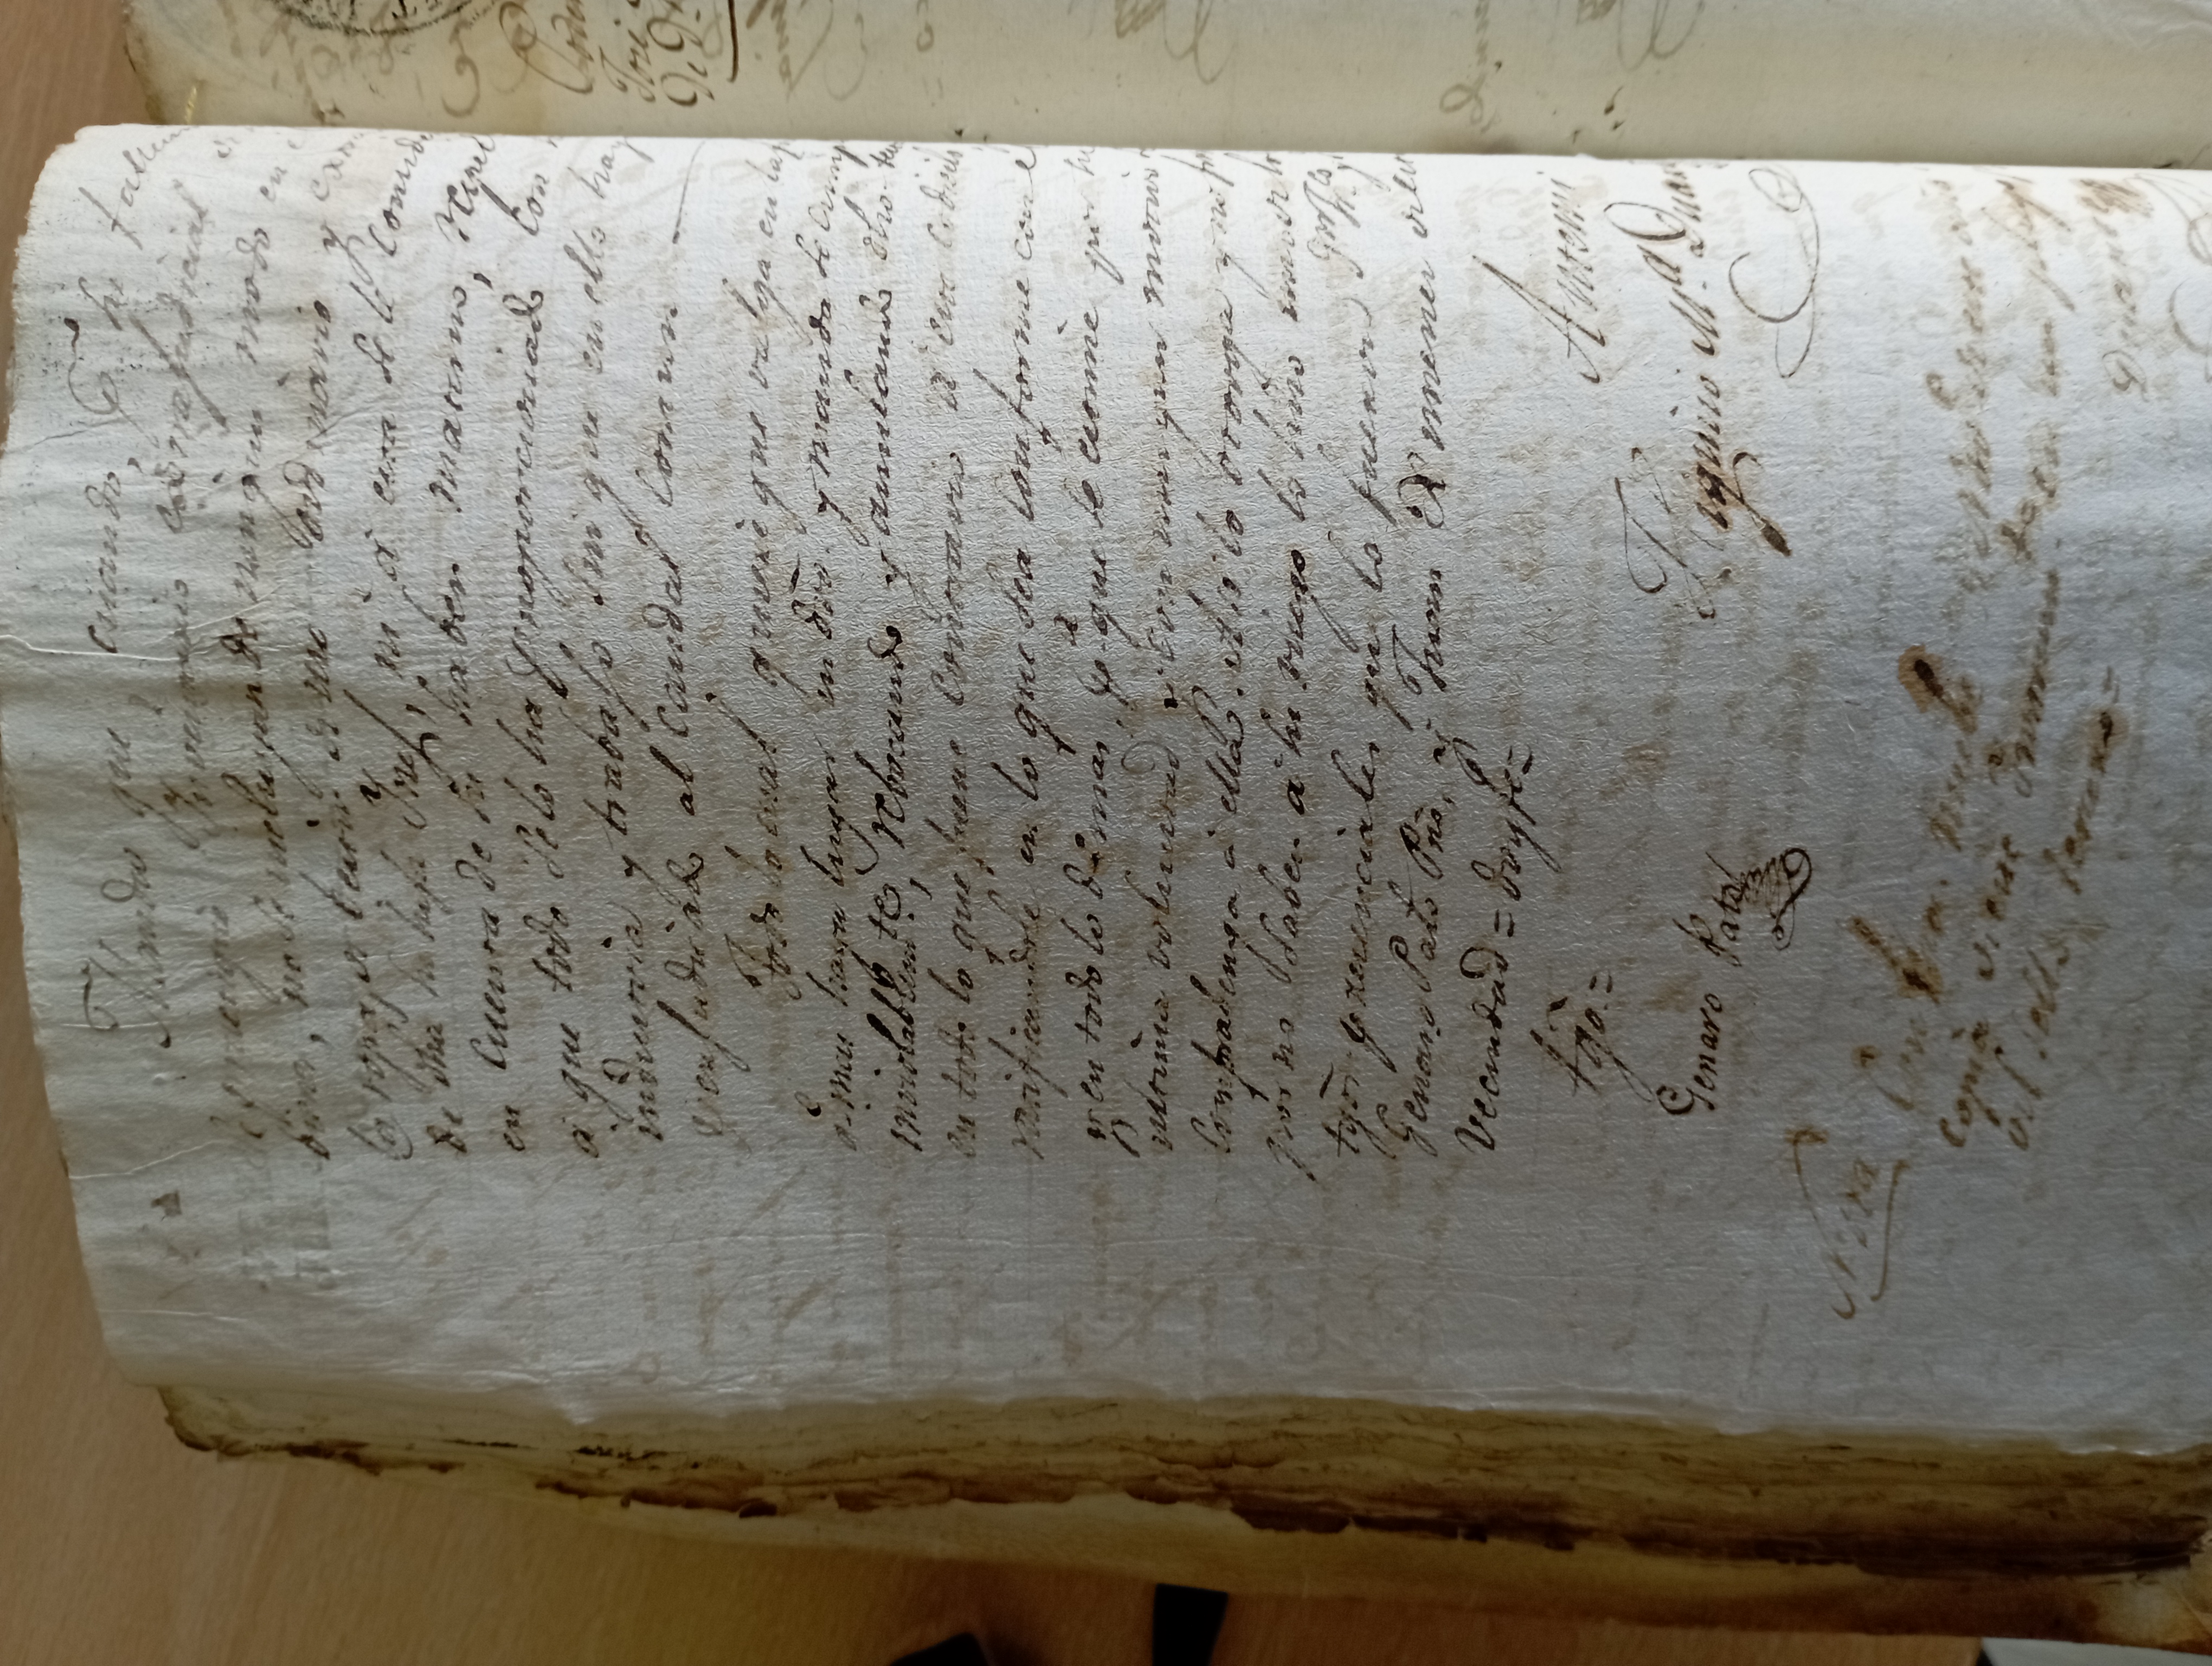 Manda que, cuando, p.r su fallec
se practique Inventario extrajudicial de
bienes, no se incluyan de ningun modo en e
la ropa de vestir de uso ordinario y extra
de dha su hija Ynes, ni á esta se le conside
en cuenta de su haber materno, respec
á que todo se lo ha proporcionado con
industria y trabajo sin que en ello hay
perjudicado al caudal comun
Todo lo cual quiere que valga en la
q.e mas haya lugar en dro. y manda se cump
inviolablem.te, rebocando y anulando dho. tes
en todo lo que fuere contrario á este codicilo
ratificandole en lo que sea conforme con el
y en todo lo demas, p.a que se estime por su
ultima voluntad y con ningun motivo
contrabenga á ella. Asi lo otorga y no fir
por no saber á su ruego lo hizo uno de lo
tgōs. presenciales que lo fueron
Genaro Pato Pño, y Juan Ximenez de est
Vecindad = doy fe =
tgō. =
Antemi
Genaro Pato
Higinio M.a Duar
Nota
Con fha. nuebe de este año
copia de este Instrum.to en un pliego
del sello tercero =
Duarte
Jose
de D.n